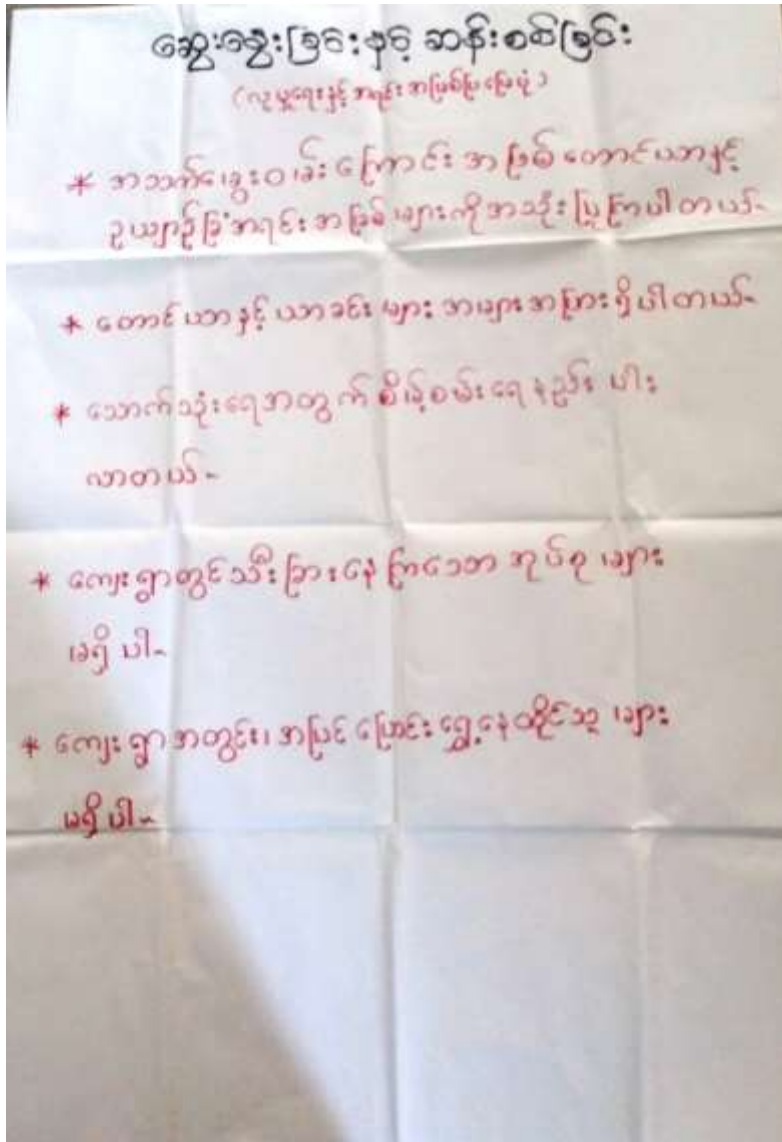 ဆွေးနွေးခြင်းနှင့် ဆန်းစစ်ခြင်း
(လူမှုရေးနှင့် အရင်းအမြစ်ပြမြေပုံ)
* အသက်မွေးဝမ်းကြောင်းအဖြစ် တောင်ယာနှင့်
ဥယျာဉ်ခြံအရင်းအမြစ်များကိုအသုံးပြုကြပါတယ်။
* တောင်ယာနှင့် ယာခင်းများ အများအပြားရှိပါတယ်။
* သောက်သုံးရေအတွက် စိမ့်စမ်းရေနည်းပါး
လာတယ်။
* ကျေးရွာတွင်သီးခြားနေကြသောအုပ်စုများ
မရှိပါ။
* ကျေးရွာအတွင်း၊ အပြင် ပြောင်းရွှေ့နေထိုင်သူများ
မရှိပါ။